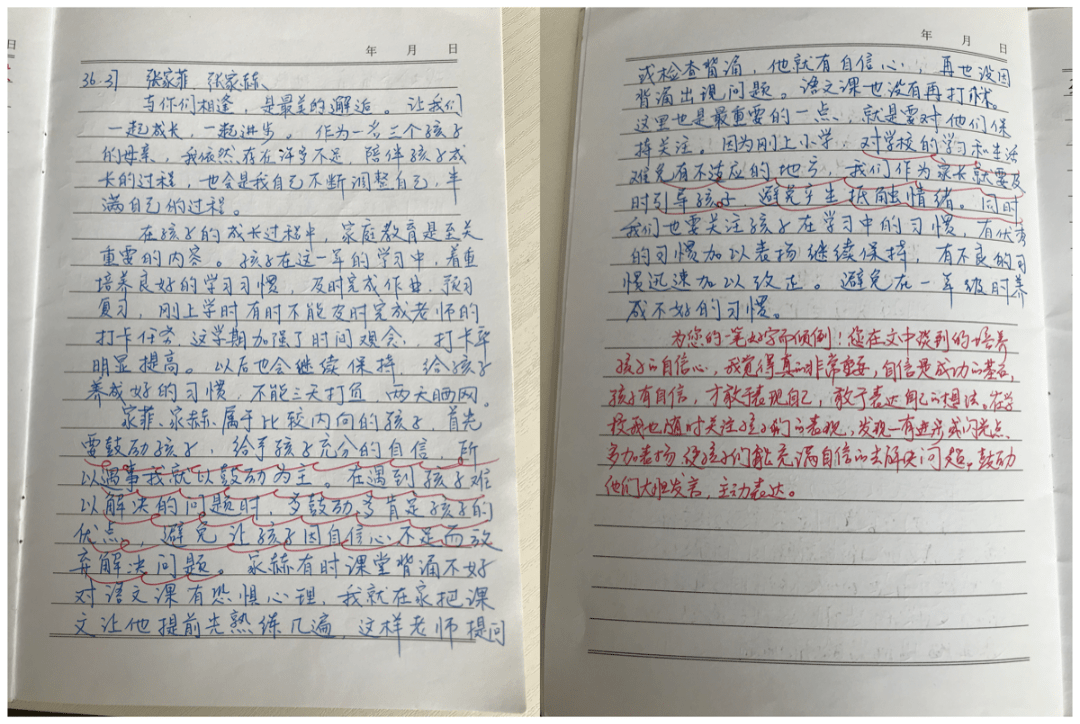 日
年 月 日
36.37 张家菲、张家赫、
与你们相逢，是最美的邂逅。让我们
一起成长，一起进步。作为一名三个孩子
的母亲，我依然存在许多不足，陪伴孩子成
长的过程，也会是我自己不断调整自己，丰
满自己的过程。
在孩子的成长过程中，家庭教育是至关
重要的内容。孩子在这一年的学习中，着重
培养良好的学习习惯，及时完成作业，预习
复习，刚上学时有时不能及时完成老师的
打卡任务，这学期加强了时间观念，打卡率
明显提高。以后也会继续保持，给孩子
养成好的习惯，不能三天打鱼，两天晒网。
家菲、家赫属于比较内向的孩子，首先
要鼓励孩子，给予孩子充分的自信，所
以遇事我就以鼓励为主。在遇到孩子难
以解决的问题时，多鼓励多肯定孩子的
优点，避免让孩子因自信心不足而放
弃解决问题。家赫有时课堂背诵不好
对语文课有恐惧心理，我就在家把课
文让他提前先熟练几遍，这样老师提问
年 月 日
或检查背诵，他就有自信心，再也没因
背诵出现问题。语文课也没有再打怵。
这里也是最重要的一点，就是要对他们保
持关注。因为刚上小学，对学校的学习和生活
难免有不适应的地方，我们作为家长就要及
时引导孩子，避免产生抵触情绪。同时
我们也要关注孩子在学习中的习惯，有优秀
的习惯加以表扬继续保持，有不良的习
惯迅速加以改正。避免在一年级时养
成不好的习惯。
为您的一笔好字而倾倒！您在文中谈到的培养
孩子的自信心，我觉得真的非常重要，自信是成功的基石，
孩子有自信，才敢于表现自己，敢于表达自己的想法。在学
校我也随时关注孩子们的表现，发现一有进步或闪光点，
多加表扬，使孩子们能充满自信的去解决问题。鼓励
他们大胆发言，主动表达。